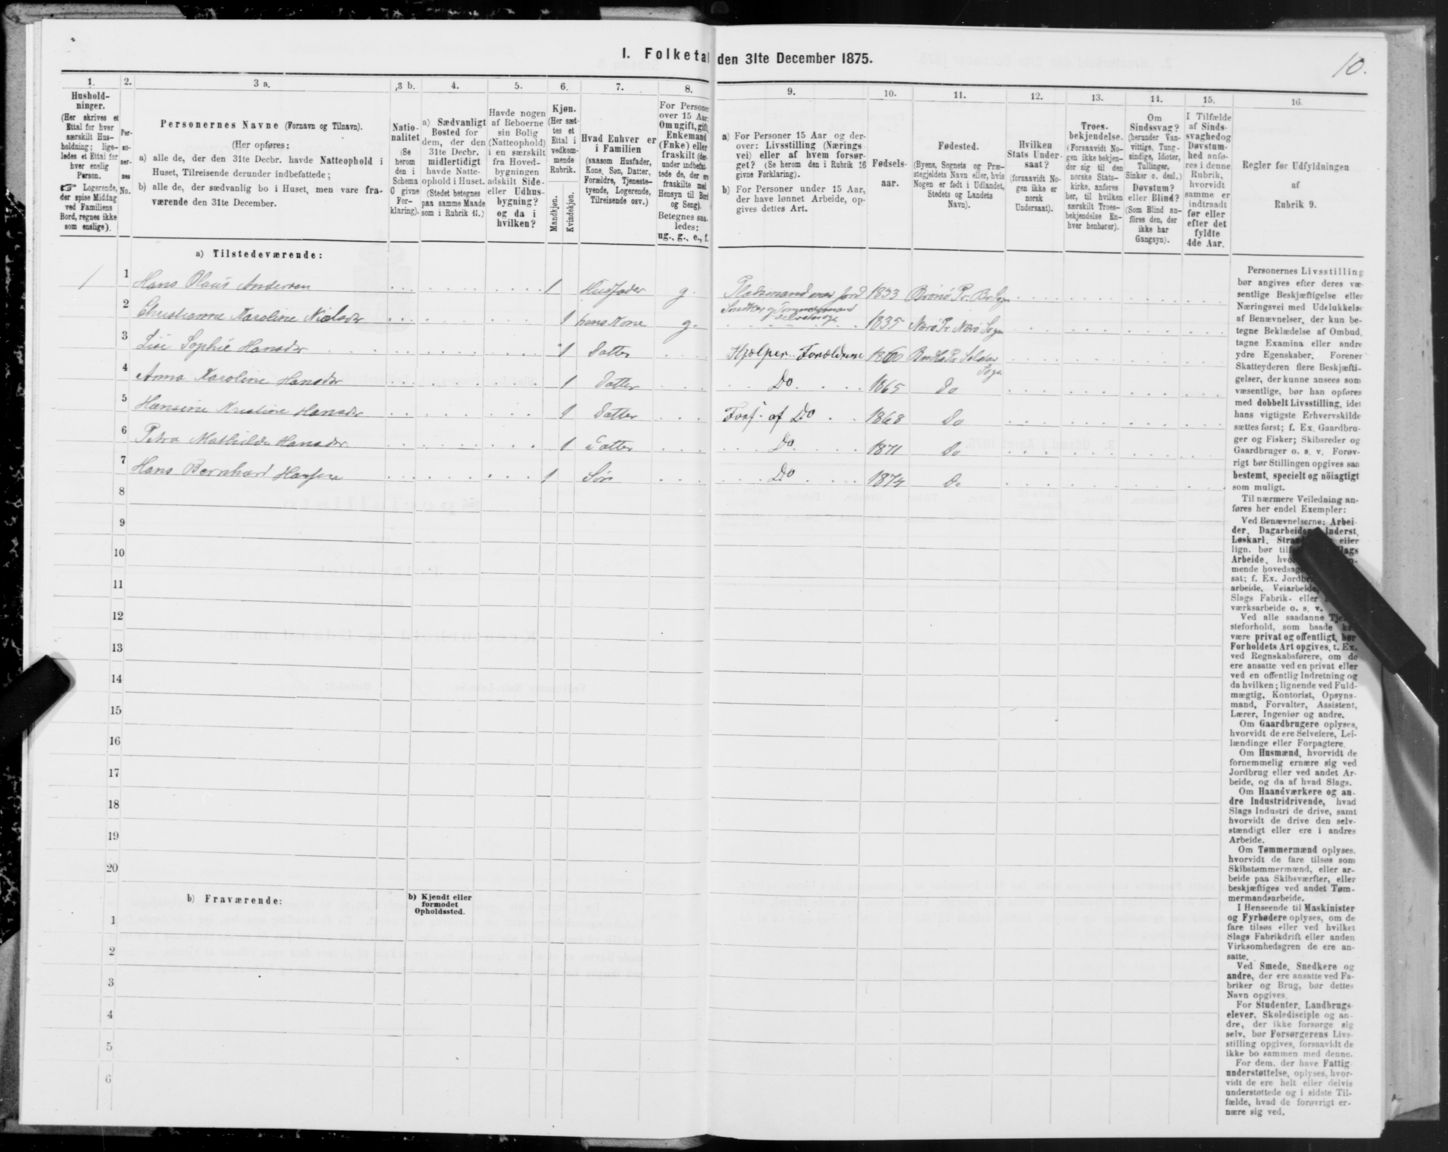 10.
I. Folketal den 31te December 1875.
1.
Hushold-
ninger.
(Her skrives et
Ettal for hver
særskilt Hus-
holdning; lige-
ledes et Ettal for
hver enslig
Person.
☞ Logerende,
der spise Middag
ved Familiens
Bord, regnes ikke
som enslige).
2.
Per-
so-
ner-
nes
No.
3 a.
Personernes Navne (Fornavn og Tilnavn).
(Her opføres:
a) alle de, der den 31te Decbr. havde Natteophold i
Huset, Tilreisende derunder indbefattede;
b) alle de, der sædvanlig bo i Huset, men vare fra-
værende den 31te December.
3 b.
Natio-
nalitet
(Se
herom
den i
Schema
0 givne
For-
klaring).
4.
a) Sædvanligt
Bosted for
dem, der den
31te Decbr.
midlertidigt
havde Natte-
ophold i Huset.
(Stedet betegnes
paa samme Maade
som i Rubrik 11.)
5.
Havde nogen
af Beboerne
sin Bolig
(Natteophold)
i en særskilt
fra Hoved-
bygningen
adskilt Side-
eller Udhus-
bygning?
og da i
hvilken?
6.
Kjøn.
(Her sæt-
tes et
Ettal i
vedkom-
mende
Rubrik.
Mandkjøn.
Kvindekjøn.
7.
Hvad Enhver er
i Familien
(saasom Husfader,
Kone, Søn, Datter,
Forældre, Tjeneste-
tyende, Logerende,
Tilreisende osv.)
8.
For Personer
over 15 Aar:
Om ugift, gift,
Enkemand
(Enke) eller
fraskilt
Betegnes saa-
ledes:
ug., g., e., f.
9.
a) For Personer 15 Aar og der-
over: Livsstilling (Nærings
vei) eller af hvem forsør-
get? (Se herom den i Rubrik 16
givne Forklaring).
b) For Personer under 15 Aar,
der have lønnet Arbeide, op-
gives dettes Art.
10.
Fødsels-
aar.
11.
Fødested.
(Byens, Sognets og Præ-
stegjeldets Navn eller, hvis
Nogen er født i Udlandet,
Stedets og Landets
Navn).
12.
Hvilken
Stats Under-
saat?
(forsaavidt No-
gen ikke er
norsk
Undersaat).
13.
Troes-
bekjendelse.
(Forsaavidt No-
gen ikke bekjen-
der sig til den
norske Stats-
kirke, anføres
her, til hvilken
særskilt Troes-
bekjendelse En-
hver henhører).
14.
Om
Sindssvag?
(herunder Van-
vittige, Tung-
sindige, Idioter,
Tullinger,
Sinker o. desl.)
Døvstum?
eller Blind?
(Som Blind an-
føres den, der
ikke har
Gangsyn).
15.
I Tilfælde
af Sinds-
svaghed og
Døvstum-
hed anfø-
res i denne
Rubrik,
hvorvidt
samme er
indtraadt
før eller
efter det
fyldte
4de Aar.
16.
Regler for Udfyldningen
af
Rubrik 9.
a) Tilstedeværende:
1 1 Hans Olaus Andersen 1 Husfader g. 1833
2 Christianne Karoline Nielsdtr 1 hans Kone g. 1835
3 Lise Sophie Hansdtr 1 Datter Hjælper Forældrene 1860
4 Anna Karoline Hansdtr 1 Datter Do 1865 Do
5 Hansine Kristine Hansdtr 1 Datter Fors. af Do 1868 Do
6 Petra Mathilde Hansdtr 1 Datter Do 1871 Do
7 Hans Bernhard Hansen 1 Søn Do 1874 Do
8
9
10
11
12
13
14
15
16
17
18
19
20
b) Fraværende:
b) Kjendt eller
formodet
Opholdssted.
1
2
3
4
5
6
Personernes Livsstilling
bør angives efter deres væ-
sentlige Beskjæftigelse eller
Næringsvei med Udelukkelse
af Benævnelser, der kun be-
tegne Beklædelse af Ombud,
tagne Examina eller andre
ydre Egenskaber. Forener
Skatteyderen flere Beskjæfti-
gelser, der kunne ansees som
væsentlige, bør han opføres
med dobbelt Livsstilling, idet
hans vigtigste Erhvervskilde
sættes først; f. Ex. Gaardbru-
ger og Fisker; Skibsreder og
Gaardbruger o. s. v. Forøv-
rigt bør Stillingen opgives saa
bestemt, specielt og nöiagtigt
som muligt.
Til nærmere Veiledning an-
føres her endel Exempler:
Ved Benævnelserne: Arbei-
der, Dagarbeider, Inderst,
Løskarl, eller
lign. bør Slags
Arbeide,
mende hovedsag
sat; f. Ex.
arbeide, Veiarbeide,
Slags Fabrik- eller
værksarbeide o. s. v.
Ved alle saadanne
steforhold, som baade
være privat og offentligt, bør
Forholdets Art opgives, t. Ex.
ved Regnskabsførere, om de
ere ansatte ved en privat eller
ved en offentlig Indretning og
da hvilken; lignende ved Fuld-
mægtig, Kontorist, Opsyns-
mand, Forvalter, Assistent,
Lærer, Ingeniør og andre.
Om Gaardbrugere oplyses,
hvorvidt de ere Selveiere, Lei-
lændinge eller Forpagtere.
Om Husmænd, hvorvidt de
fornemmelig ernære sig ved
Jordbrug eller ved andet Ar-
beide, og da af hvad Slags.
Om Haandværkere og an-
dre Industridrivende, hvad
Slags Industri de drive, samt
hvorvidt de drive den selv-
stændigt eller ere i andres
Arbeide.
Om Tømmermænd oplyses,
hvorvidt de fare tilsøs som
Skibstømmermænd, eller ar-
beide paa Skibsværfter, eller
beskjæftiges ved andet Tøm-
mermandsarbeide.
I Henseende til Maskinister
og Fyrbødere oplyses, om de
fare tilsøs eller ved hvilket
Slags Fabrikdrift eller anden
Virksomhedsgren de ere an-
satte.
Ved Smede, Snedkere og
andre, der ere ansatte ved Fa-
briker og Brug, bør dettes
Navn opgives.
For Studenter, Landbrugs-
elever, Skoledisciple og an-
dre, der ikke forsørge sig
selv, bør Forsørgerens Livs-
stilling opgives, forsaavidt de
ikke bo sammen med denne.
For dem, der have Fattig-
understøttelse, oplyses, hvor-
vidt de ere helt eller delvis
understøttede og i sidste Til-
fælde, hvad de forøvrigt er-
nære sig ved.